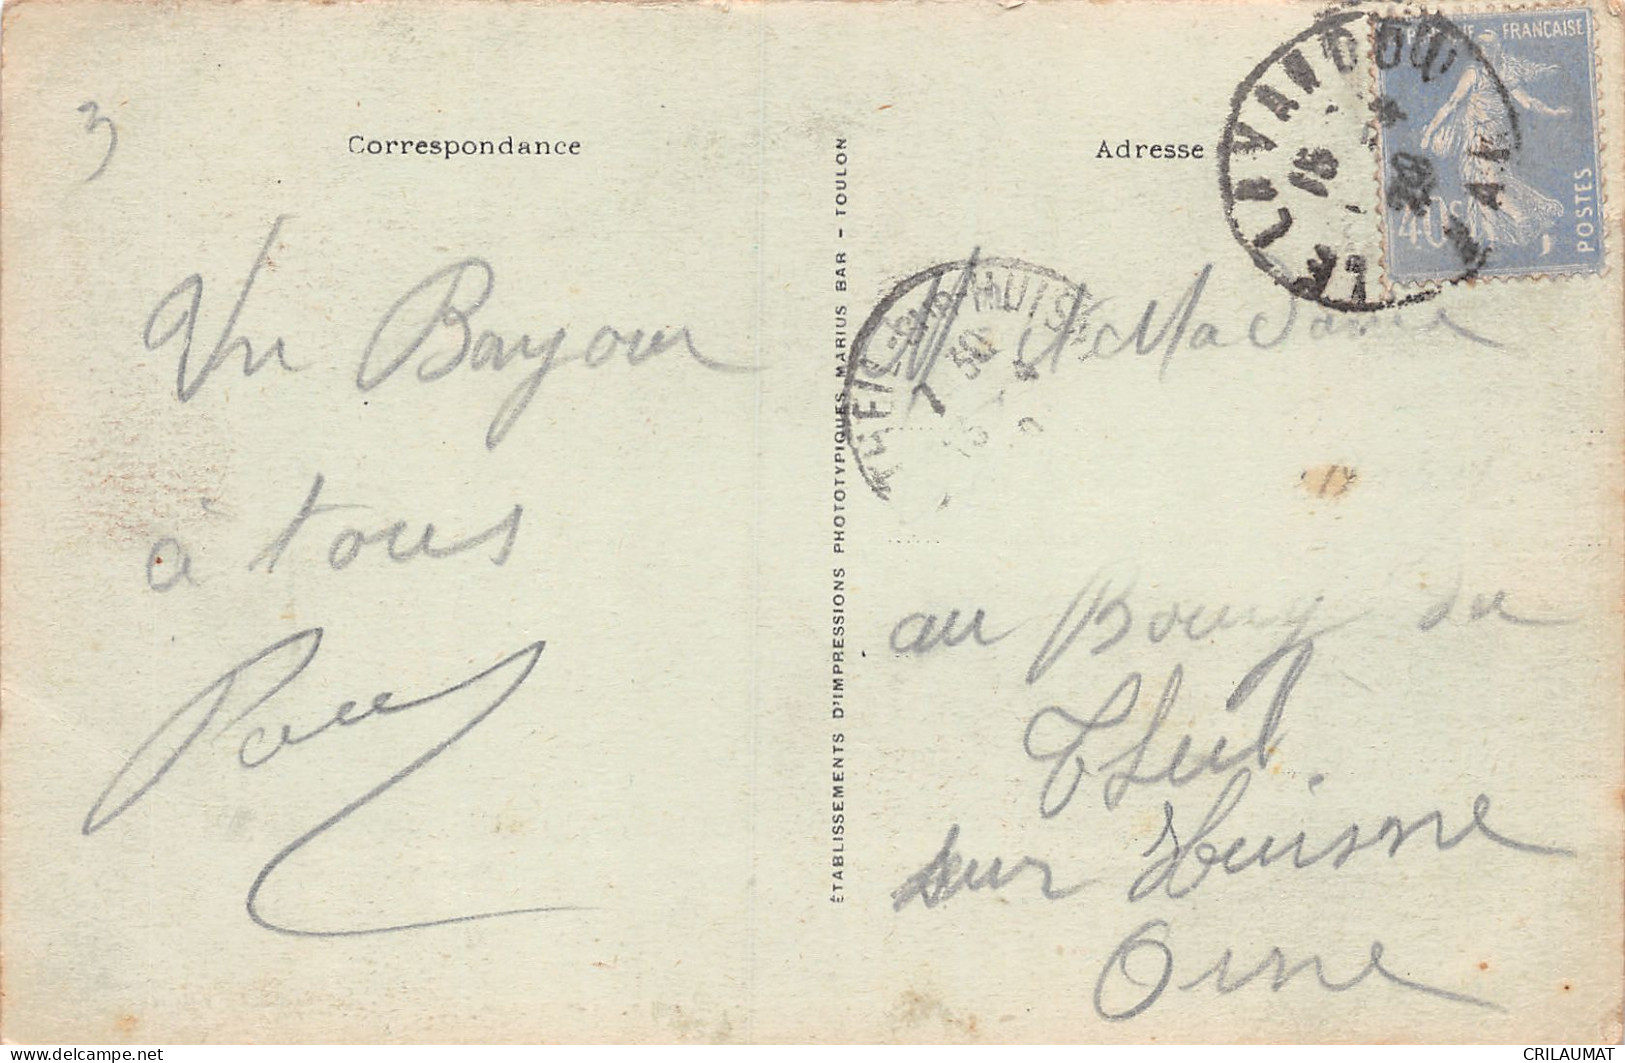 3
Correspondance
Un Bonjour
à tous
Paul
ÉTABLISSEMENTS D'IMPRESSIONS PHOTOTYPIQUES MARIUS BAR - TOULON
Adresse
LE LAVANDOU
16
FRANÇAISE
40c
POSTES
HUISNE
7 30
M et Madame
au Bourg du
Theil
sur Huisne
Orne
www.delcampe.net
CRILAUMAT